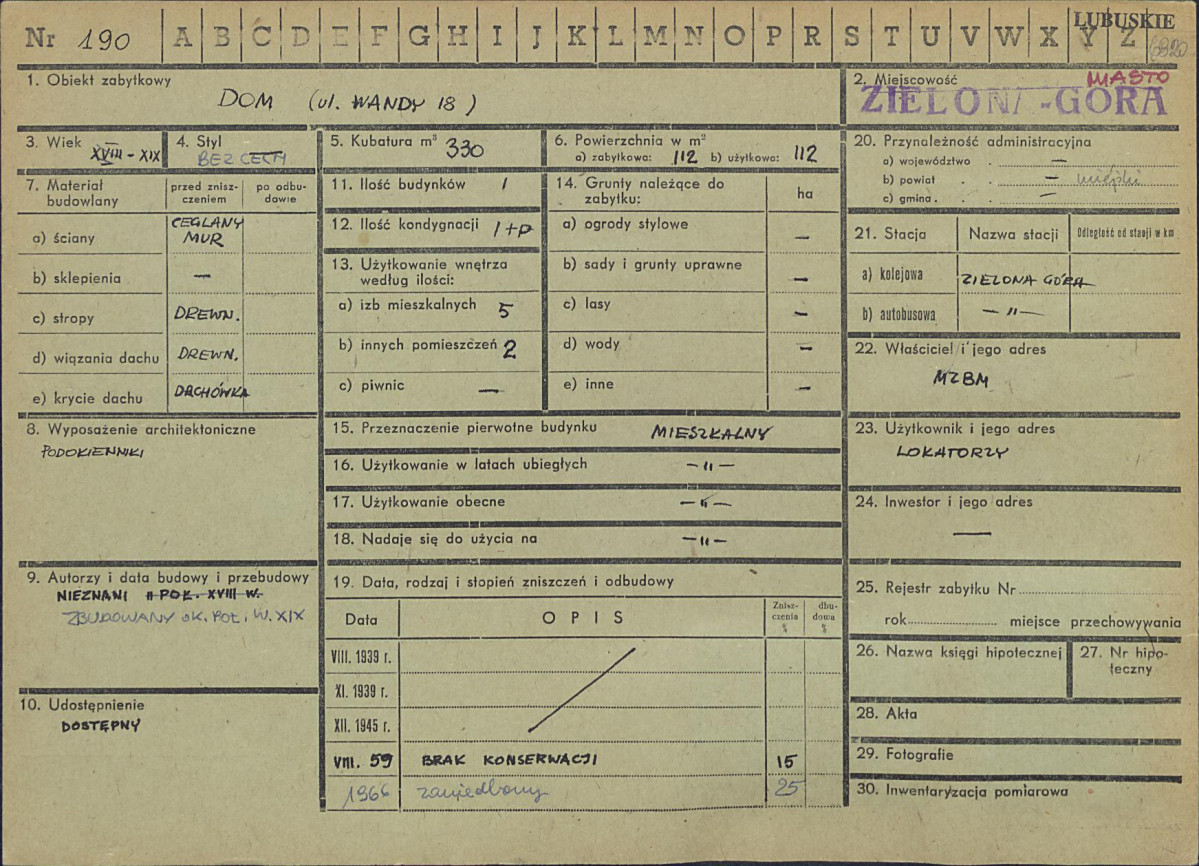 LUBUSKIE
Nr 190 A B C D E F G H I J K L M N O P R S T U V W X Y Z
1. Obiekt zabytkowy
DOM (ul. WANDY 18)
2. Miejscowość MIASTO
ZIELONA-GÓRA
3. Wiek XVIII - XIX
4. Styl
BEZ CECH
5. Kubatura m³ 330
6. Powierzchnia w m²
a) zabytkowa: 112 b) użytkowa: 112
7. Materiał budowlany
przed zniszczeniem
po odbudowie
a) ściany CEGLANY MUR
b) sklepienia —
c) stropy DREWN.
d) wiązania dachu DREWN.
e) krycie dachu DACHÓWKA
8. Wyposażenie architektoniczne
PODOKIENNIKI
9. Autorzy i data budowy i przebudowy
NIEZNANI II POŁ. XVIII W.
ZBUDOWANY OK. POŁ. W. XIX
10. Udostępnienie
DOSTĘPNY
11. Ilość budynków 1
12. Ilość kondygnacji 1+P
13. Użytkowanie wnętrza
według ilości:
a) izb mieszkalnych 5
b) innych pomieszczeń 2
c) piwnic —
14. Grunty należące do
zabytku:
ha
a) ogrody stylowe —
b) sady i grunty uprawne —
c) lasy —
d) wody —
e) inne —
15. Przeznaczenie pierwotne budynku MIESZKALNY
16. Użytkowanie w latach ubiegłych —„—
17. Użytkowanie obecne —„—
18. Nadaje się do użycia na —„—
19. Data, rodzaj i stopień zniszczeń i odbudowy
Data OPIS Zniszczenia % dbudowa %
VIII. 1939 r.
XI. 1939 r.
XII. 1945 r.
VIII. 59 BRAK KONSERWACJI 15
1966 zaniedbany 25
20. Przynależność administracyjna
a) województwo . —
b) powiat . . — miejski
c) gmina . . . —
21. Stacja Nazwa stacji Odległość od stacji w km
a) kolejowa ZIELONA GÓRA
b) autobusowa —„—
22. Właściciel i jego adres
MZBM
23. Użytkownik i jego adres
LOKATORZY
24. Inwestor i jego adres
—
25. Rejestr zabytku Nr
rok miejsce przechowywania
26. Nazwa księgi hipotecznej
27. Nr hipoteczny
28. Akta
29. Fotografie
30. Inwentaryzacja pomiarowa